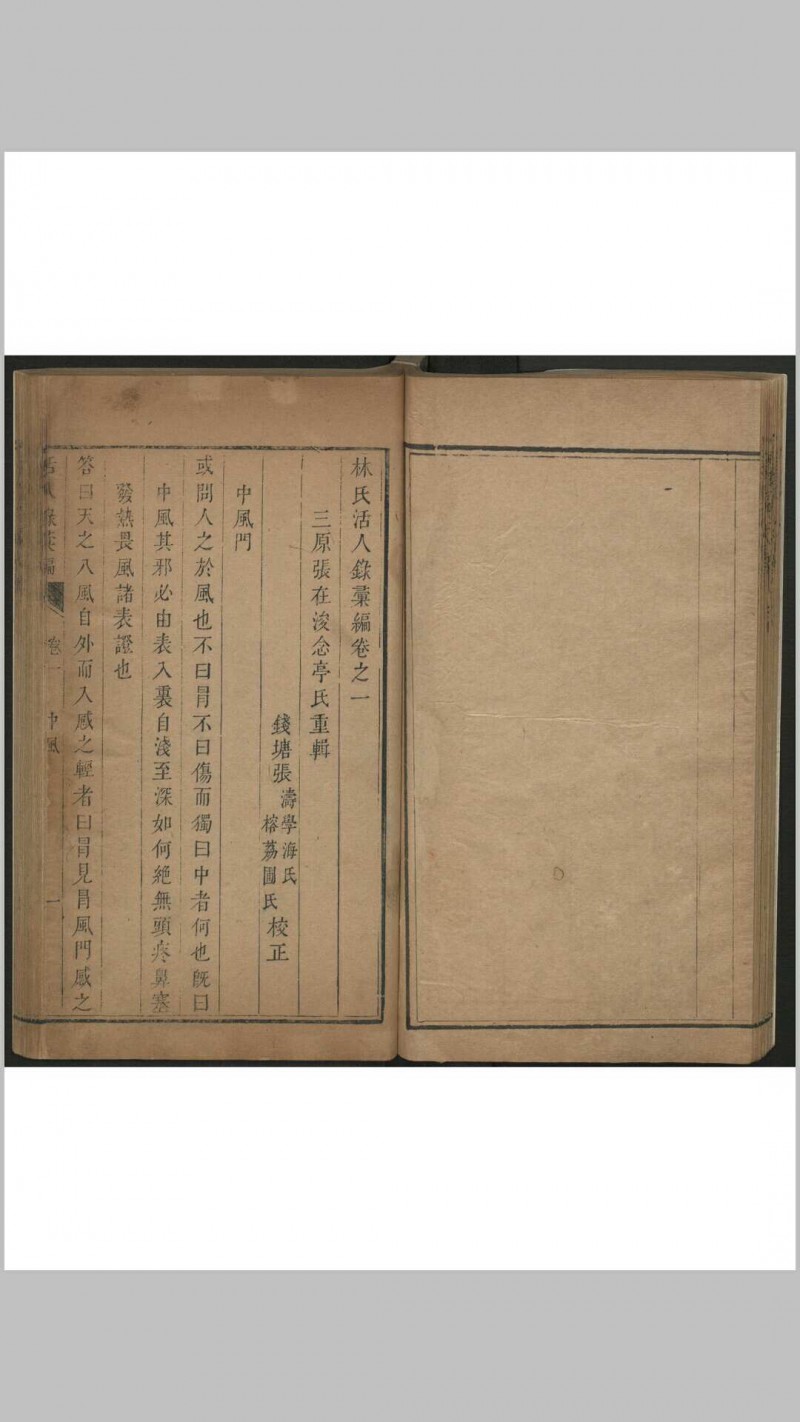 林氏活人錄彙編卷之一
三原張在浚念亭氏重輯
錢塘張
濤學海氏
榕荔園氏
校正
中風門
或問人之於風也不曰冐不曰傷而獨曰中者何也旣曰
中風其邪必由表入裏自淺至深如何絶無頭疼鼻塞
發熱畏風諸表證也
答曰天之八風自外而入感之輕者曰冐見冐風門感之
活人錄彙編
卷一
中風
一